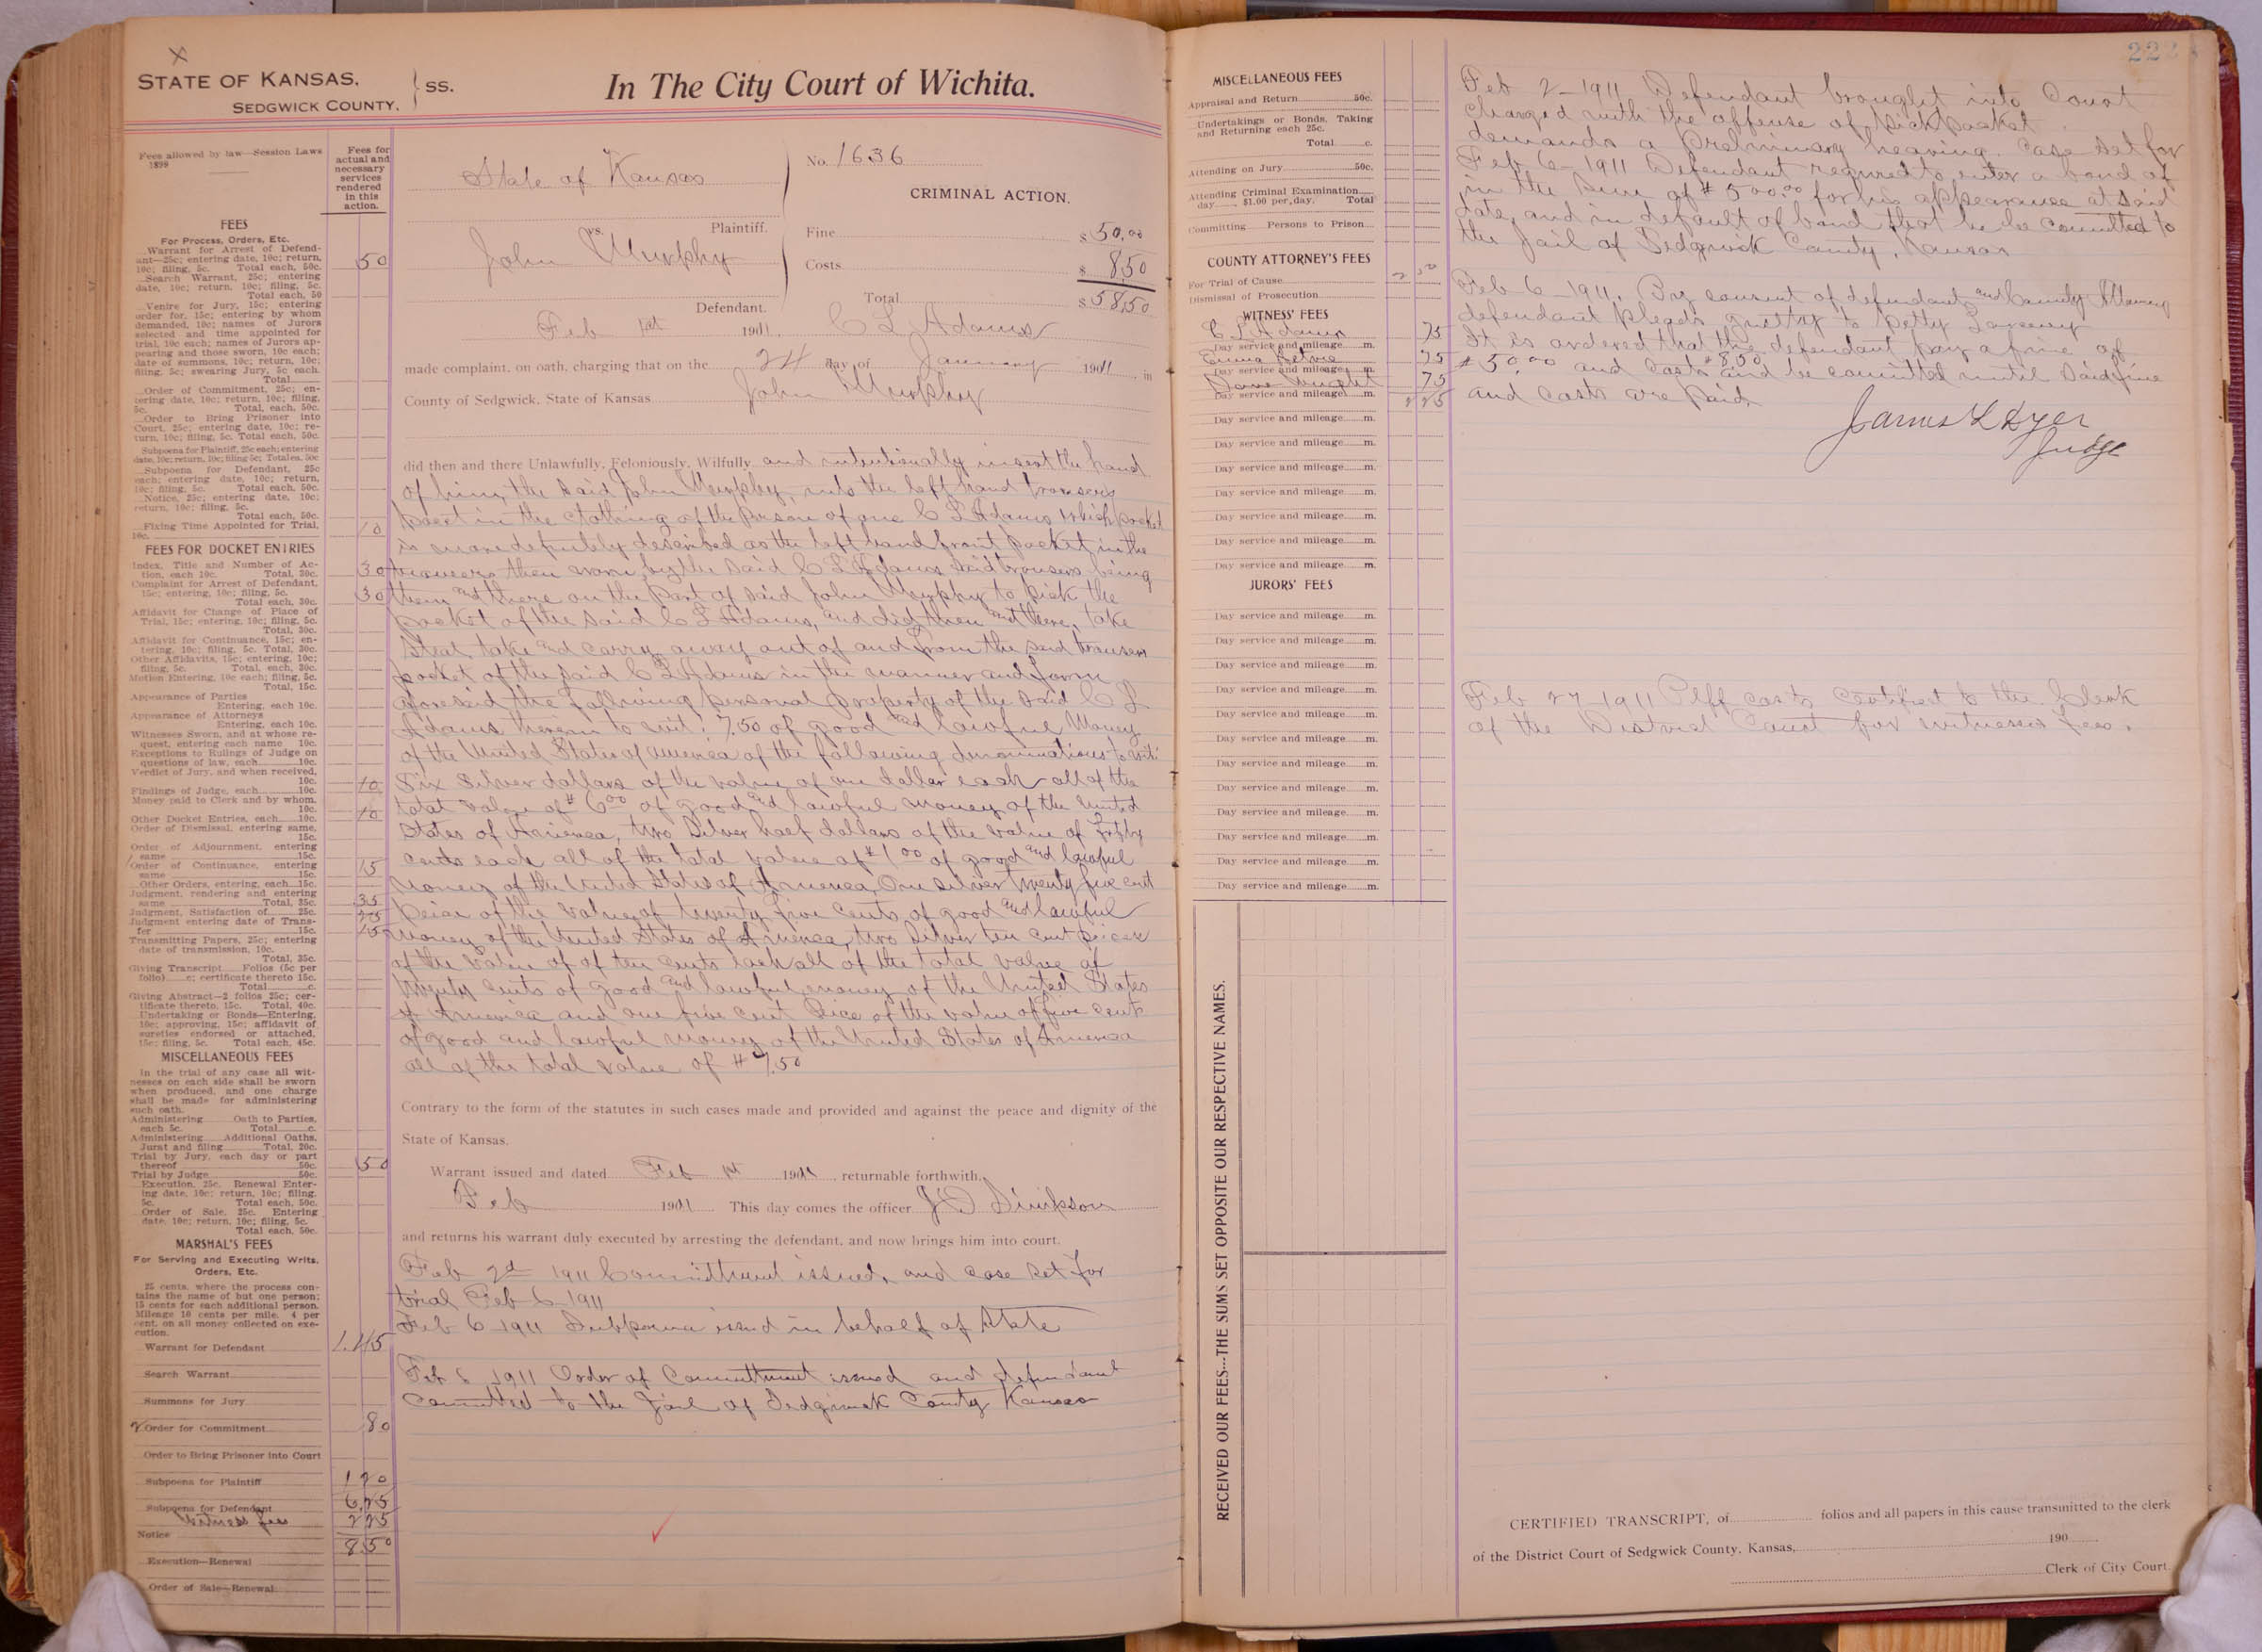 X
STATE OF KANSAS,
SEDGWICK COUNTY.
SS.
In The City Court of Wichita.
Fees allowed by law—Session Laws
1899
Fees for
actual and
necessary
services
rendered
in this
action.
FEES
For Process, Orders, Etc.
Warrant for Arrest of Defend-
ant—25c; entering date, 10c; return,
10c; filing, 5c. Total each, 50c. 50
Search Warrant, 25c; entering
date, 10c; return, 10c; filing, 5c.
Total each, 50
Venire for Jury, 15c; entering
order for, 15c; entering by whom
demanded, 10c; names of Jurors
selected and time appointed for
trial, 10c each; names of Jurors ap-
pearing and those sworn, 10c each;
date of summons, 10c; return, 10c;
filing, 5c; swearing Jury, 5c each.
Total
Order of Commitment, 25c; en-
tering date, 10c; return, 10c; filing,
5c. Total, each, 50c.
Order to Bring Prisoner into
Court, 25c; entering date, 10c; re-
turn, 10c; filing, 5c. Total each, 50c.
Subpoena for Plaintiff, 25c each; entering
date, 10c; return, 10c; filing 5c; Total ea. 50c
Subpoena for Defendant, 25c
each; entering date, 10c; return,
10c; filing, 5c. Total each, 50c.
Notice, 25c; entering date, 10c;
return, 10c; filing, 5c.
Total each, 50c.
Fixing Time Appointed for Trial,
10c. 10
FEES FOR DOCKET ENTRIES
Index, Title and Number of Ac-
tion, each 10c. Total, 30c. 30
Complaint for Arrest of Defendant,
15c; entering, 10c; filing, 5c.
Total each, 30c. 30
Affidavit for Change of Place of
Trial, 15c; entering, 10c; filing, 5c.
Total, 30c.
Affidavit for Continuance, 15c; en-
tering, 10c; filing, 5c. Total, 30c.
Other Affidavits, 15c; entering, 10c;
filing, 5c. Total, each, 30c.
Motion Entering, 10c each; filing, 5c.
Total, 15c.
Appearance of Parties
Entering, each 10c.
Appearance of Attorneys
Entering, each 10c.
Witnesses Sworn, and at whose re-
quest, entering each name 10c.
Exceptions to Rulings of Judge on
questions of law, each 10c.
Verdict of Jury, and when received,
10c. 10
Findings of Judge, each 10c.
Money paid to Clerk and by whom,
10c. 10
Other Docket Entries, each 10c.
Order of Dismissal, entering same,
15c.
Order of Adjournment, entering
same 15c.
Order of Continuance, entering
same 15c. 15
Other Orders, entering, each 15c.
Judgment, rendering and entering
same Total, 35c. 35
Judgment, Satisfaction of 25c. 25
Judgment entering date of Trans-
fer 15c. 15
Transmitting Papers, 25c; entering
date of transmission, 10c.
Total, 35c.
Giving Transcript Folios (5c per
folio) c; certificate thereto 15c.
Total c.
Giving Abstract—2 folios 25c; cer-
tificate thereto, 15c. Total, 40c.
Undertaking or Bonds—Entering,
10c; approving, 15c; affidavit of
sureties endorsed or attached,
15c; filing, 5c. Total each, 45c.
MISCELLANEOUS FEES
In the trial of any case all wit-
nesses on each side shall be sworn
when produced, and one charge
shall be made for administering
such oath.
Administering Oath to Parties,
each 5c. Total c.
Administering Additional Oaths,
Jurat and filing Total, 20c.
Trial by Jury, each day or part
thereof 50c. 50
Trial by Judge 50c.
Execution, 25c. Renewal Enter-
ing date, 10c; return, 10c; filing,
5c. Total each, 50c.
Order of Sale, 25c. Entering
date, 10c; return, 10c; filing, 5c.
Total each, 50c.
MARSHAL'S FEES
For Serving and Executing Writs,
Orders, Etc.
25 cents, where the process con-
tains the name of but one person;
15 cents for each additional person.
Mileage 10 cents per mile. 4 per
cent. on all money collected on exe-
cution.
Warrant for Defendant 1.45
Search Warrant
Summons for Jury
2 Order for Commitment 80
Order to Bring Prisoner into Court
Subpoena for Plaintiff 1 20
Subpoena for Defendant 6.25
Witness fees 2 25
Notice 8.50
Execution—Renewal
Order of Sale—Renewal
State of Kansas
Plaintiff.
vs.
John Murphy
Defendant.
No. 1636
CRIMINAL ACTION.
Fine $ 50.00
Costs $ 8.50
Total $ 58.50
Feb 1st 1911. C L Adams
made complaint, on oath, charging that on the 24 day of January 1911, in
County of Sedgwick, State of Kansas John Murphy
did then and there Unlawfully, Feloniously, Wilfully and intentionally insert the hand
of him, the said John Murphy, into the left hand trousers
pocet in the clothing of the person of one C L Adams which pocket
is more definitely described as the left hand front pocket in the
trousers then worn by the said C L Adams said trousers being
then and there on the part of said John Murphy to pick the
pocket of the said C L Adams, and did then and there, take
steal take and carry away out of and from the said trousers
pocket of the said C L Adams in the manner and form
aforesaid the following personal property of the said C L
Adams therein to wit: 7.50 of good and lawful Money
of the United States of America of the following denominations to wit:
Six silver dollars of the value of one dollar each all of the
total value of $6.00 of good and lawful money of the United
States of America, two Silver half dollars of the value of Fifty
cents each all of the total value of $1.00 of good and lawful
Money of the United States of America, One silver twenty five cent
peice of the value of twenty five cents of good and lawful
money of the United States of America, two Silver ten cent peices
of the value of of ten cents each all of the total value of
twenty cents of good and lawful money of the United States
of America and one five cent Peice of the value of five cents
of good and lawful money of the United States of America
all of the total value of $7.50
Contrary to the form of the statutes in such cases made and provided and against the peace and dignity of the
State of Kansas.
Warrant issued and dated Feb 1st 1911, returnable forthwith.
Feb 1911 This day comes the officer J D Simpson
and returns his warrant duly executed by arresting the defendant, and now brings him into court.
Feb 2d 1911 Committment issued, and case set for
trial Feb 6 1911
Feb 6 1911 Subpoena issued in behalf of State
Feb 6 1911 Order of Committment issued and defendant
committed to the Jail of Sedgwick County Kansas
MISCELLANEOUS FEES
Appraisal and Return 50c.
Undertakings or Bonds, Taking
and Returning each 25c.
Total c.
Attending on Jury 50c.
Attending Criminal Examination
day $1.00 per day. Total
Committing Persons to Prison
COUNTY ATTORNEY'S FEES
For Trial of Cause
Dismissal of Prosecution
WITNESS' FEES
C L Adams 75
Day service and mileage m.
Emma 75
Day service and mileage m.
75
Day service and mileage m. 2 25
Day service and mileage m.
Day service and mileage m.
Day service and mileage m.
Day service and mileage m.
Day service and mileage m.
Day service and mileage m.
Day service and mileage m.
JURORS' FEES
Day service and mileage m.
Day service and mileage m.
Day service and mileage m.
Day service and mileage m.
Day service and mileage m.
Day service and mileage m.
Day service and mileage m.
Day service and mileage m.
Day service and mileage m.
Day service and mileage m.
Day service and mileage m.
Day service and mileage m.
RECEIVED OUR FEES---THE SUMS SET OPPOSITE OUR RESPECTIVE NAMES.
222
Feb 2—1911 Defendant brought into Court
charged with the offense of Pickpocket
demands a Preliminary hearing. Case set for
Feb 6—1911 Defendant required to enter a bond of
in the sum of $500.00 for his appearance at said
date, and in default of bond that he be committed to
the Jail of Sedgwick County, Kansas
Feb 6—1911. By consent of defendant and County Attorney
defendant pleads guilty to petty Larceny
It is ordered that the defendant pay a fine of
$50.00 and costs $8.50 and be committed until said fine
and costs are paid
James L Dyer
Judge
Feb 27 1911 Plff costs certified to the Clerk
of the District Court for witnesses fees.
CERTIFIED TRANSCRIPT, of folios and all papers in this cause transmitted to the clerk
of the District Court of Sedgwick County, Kansas, 190
Clerk of City Court.